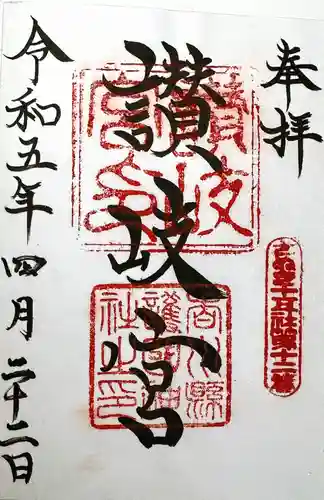 奉拝
讃岐宮
香川縣
護國神
社之印
令和五年四月二十二日